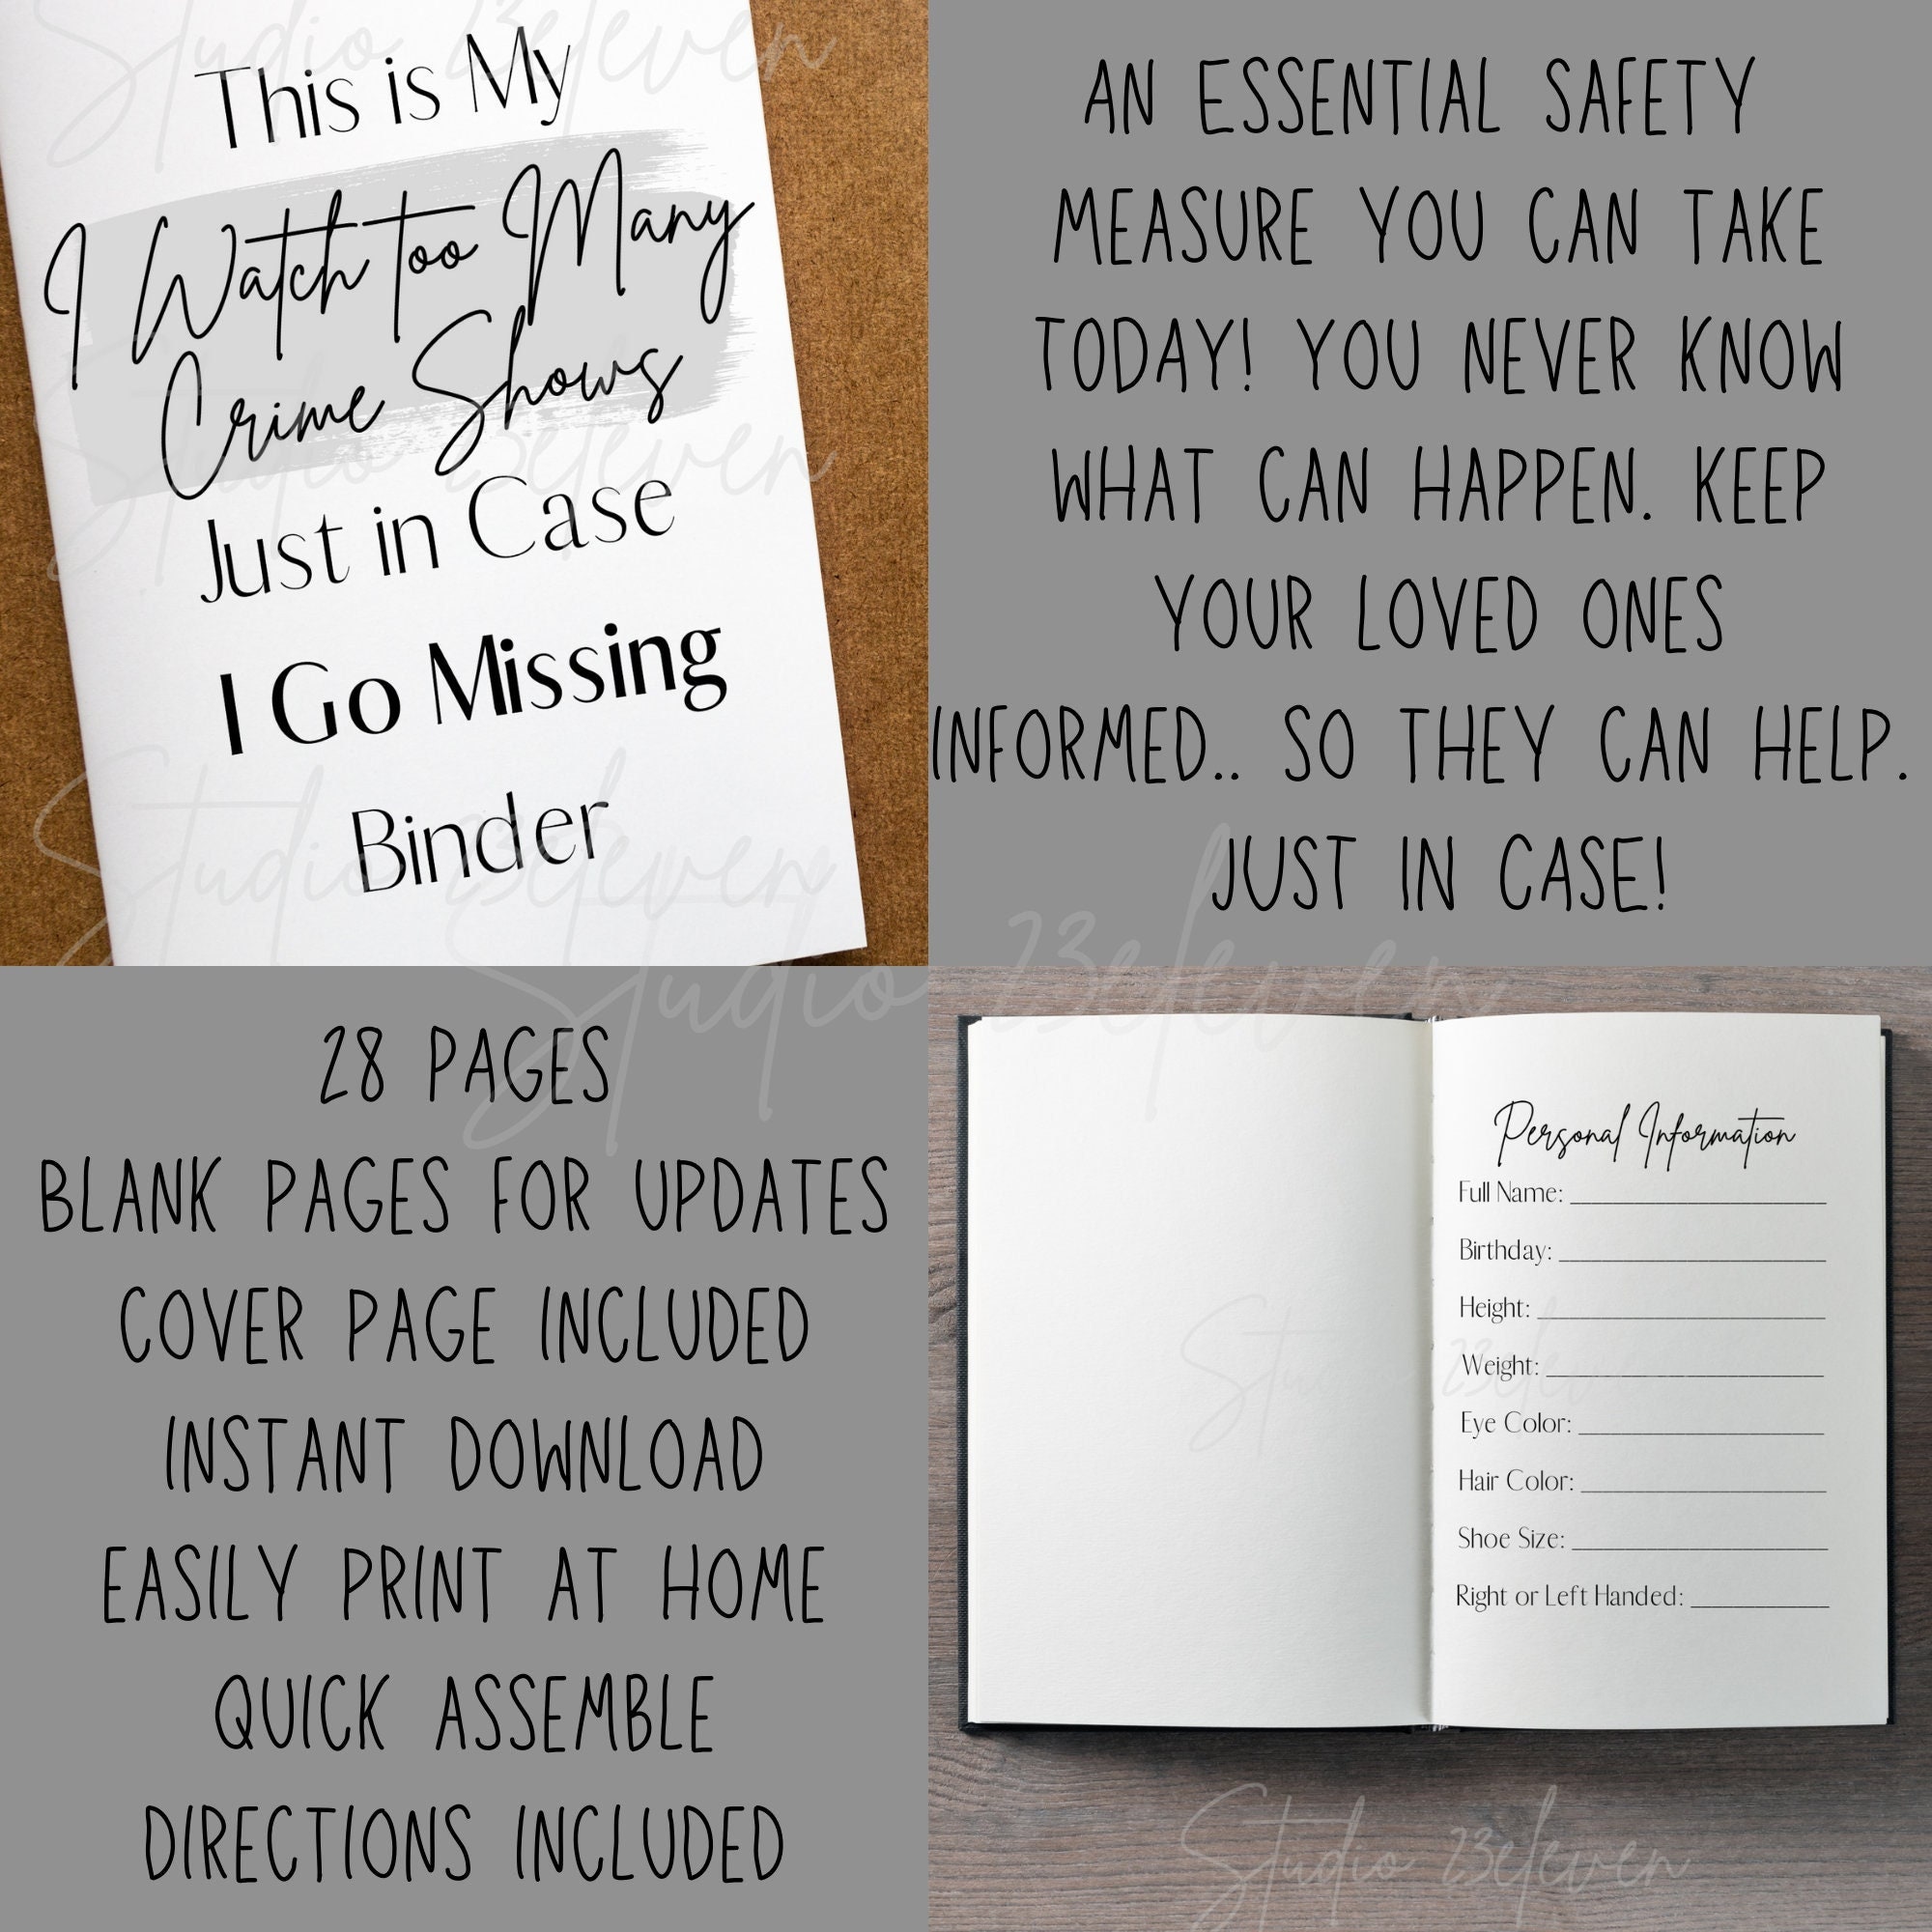 This is My
I Watch too Many
Crime Shows
Just in Case
I Go Missing
Binder
AN ESSENTIAL SAFETY
MEASURE YOU CAN TAKE
TODAY! YOU NEVER KNOW
WHAT CAN HAPPEN. KEEP
YOUR LOVED ONES
INFORMED.. SO THEY CAN HELP.
JUST IN CASE!
28 PAGES
BLANK PAGES FOR UPDATES
COVER PAGE INCLUDED
INSTANT DOWNLOAD
EASILY PRINT AT HOME
QUICK ASSEMBLE
DIRECTIONS INCLUDED
Personal Information
Full Name:
Birthday:
Height:
Weight:
Eye Color:
Hair Color:
Shoe Size:
Right or Left Handed:
Studio 23eleven
Studio 23eleven
Studio 23eleven
Studio 23eleven
Studio 23eleven
Studio 23eleven